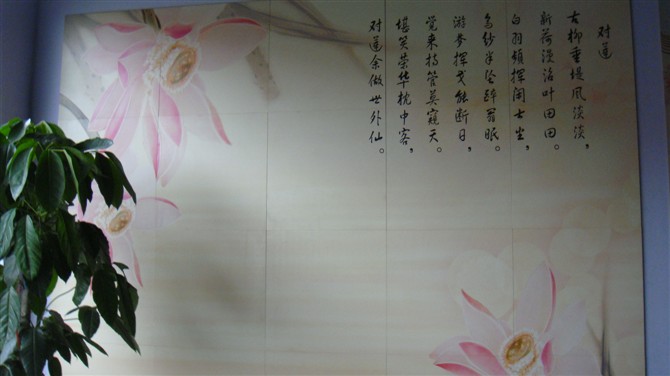 对莲
古柳垂堤风淡淡，
新荷漫沼叶田田。
白羽频挥闲士坐，
乌纱半坠醉翁眠。
游梦挥戈能断日，
觉来持管莫窥天。
堪笑荣华枕中客，
对莲余做世外仙。